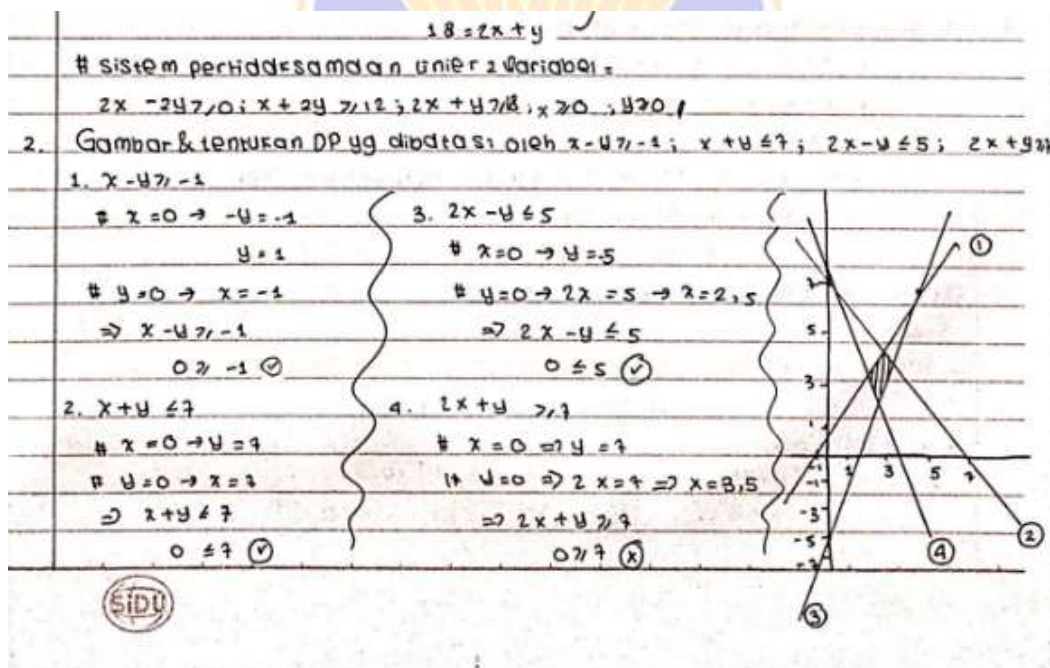 18 = 2x + y
# Sistem pertidaksamaan linier 2 Variabel =
2x - 2y ≥ 0 ; x + 2y ≥ 12 ; 2x + y ≥ 18 ; x ≥ 0 ; y ≥ 0
2. Gambar & tentukan DP yg dibatasi oleh x - y ≥ -1 ; x + y ≤ 7 ; 2x - y ≤ 5 ; 2x + y ≥ 7
1. x - y ≥ -1
# x = 0 → -y = -1
y = 1
# y = 0 → x = -1
⇒ x - y ≥ -1
0 ≥ -1 ✓
2. x + y ≤ 7
# x = 0 → y = 7
# y = 0 → x = 7
⇒ x + y ≤ 7
0 ≤ 7 ✓
3. 2x - y ≤ 5
# x = 0 → y = -5
# y = 0 → 2x = 5 → x = 2,5
⇒ 2x - y ≤ 5
0 ≤ 5 ✓
4. 2x + y ≥ 7
# x = 0 ⇒ y = 7
# y = 0 ⇒ 2x = 7 ⇒ x = 3,5
⇒ 2x + y ≥ 7
0 ≥ 7 x
1
7
5
3
1
-1 1 3 5 7
-1
-3
-5
-7
2
4
3
SiDU